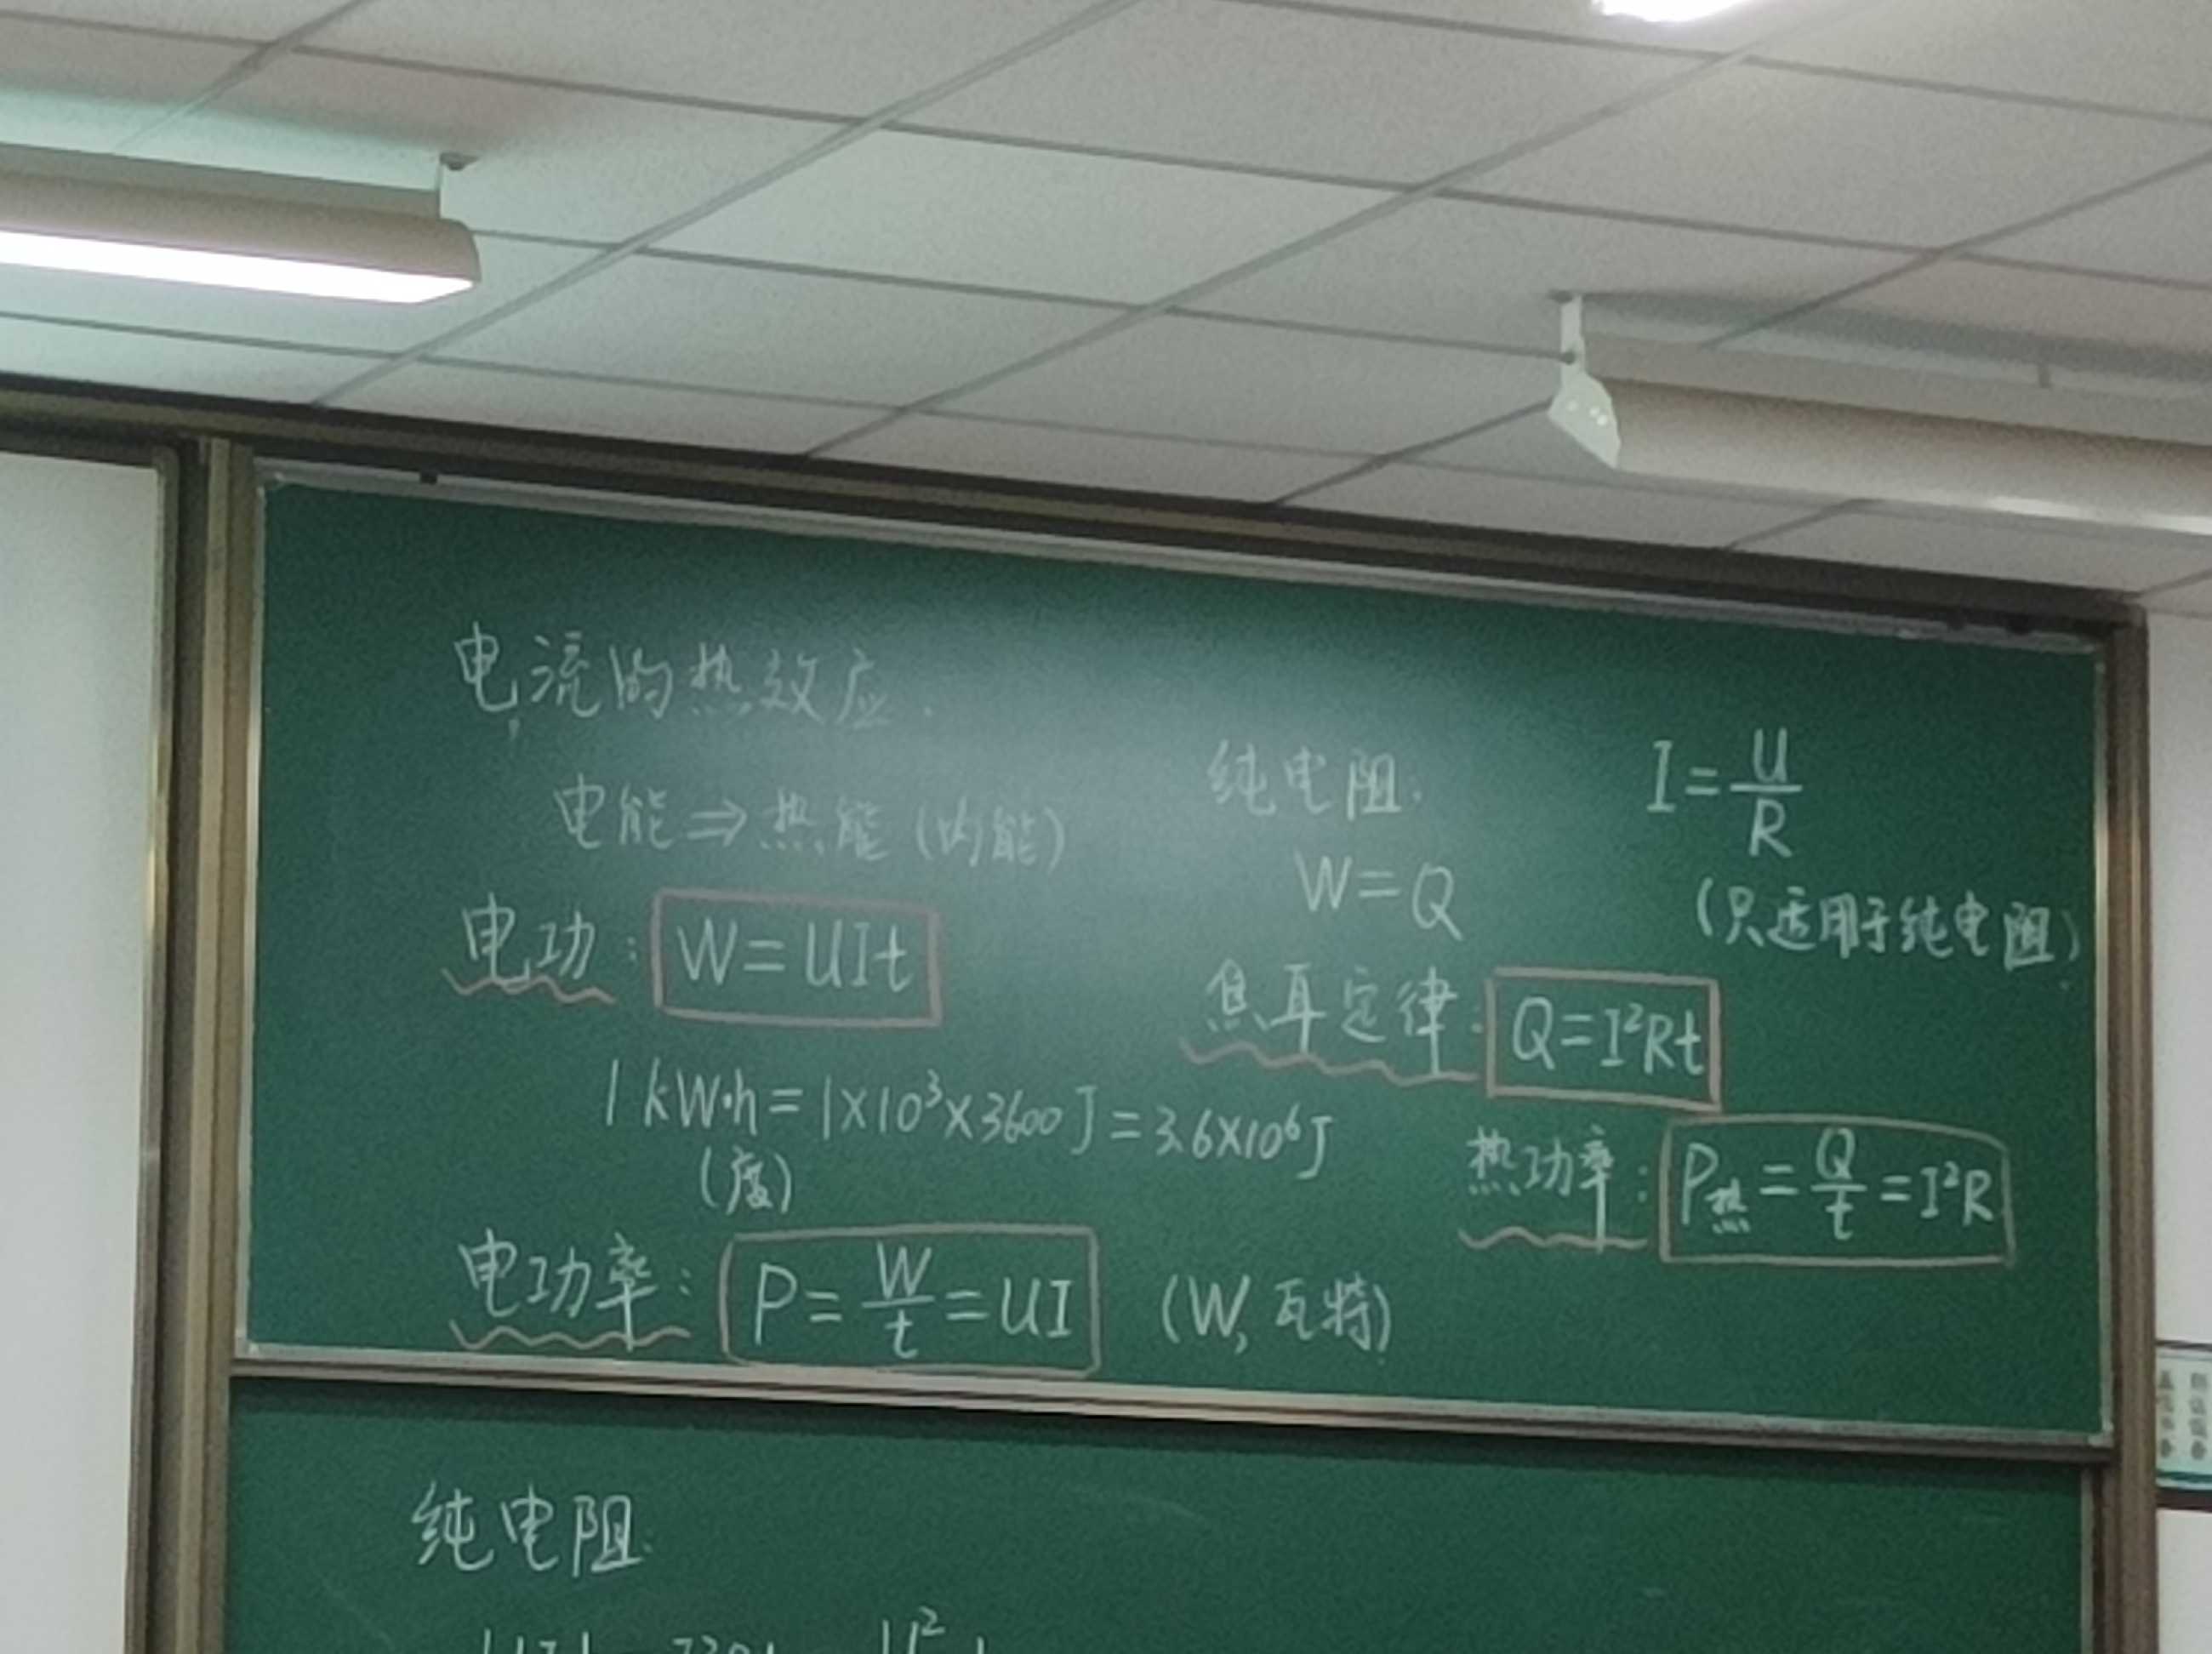 电流的热效应.
电能⇒热能(内能)
电功: W=UIt
1kW·h=1×10³×3600J=3.6×10⁶J
(度)
电功率: P=W/t=UI (W,瓦特)
纯电阻:
W=Q
I=U/R
(只适用于纯电阻)
焦耳定律: Q=I²Rt
热功率: P热=Q/t=I²R
纯电阻